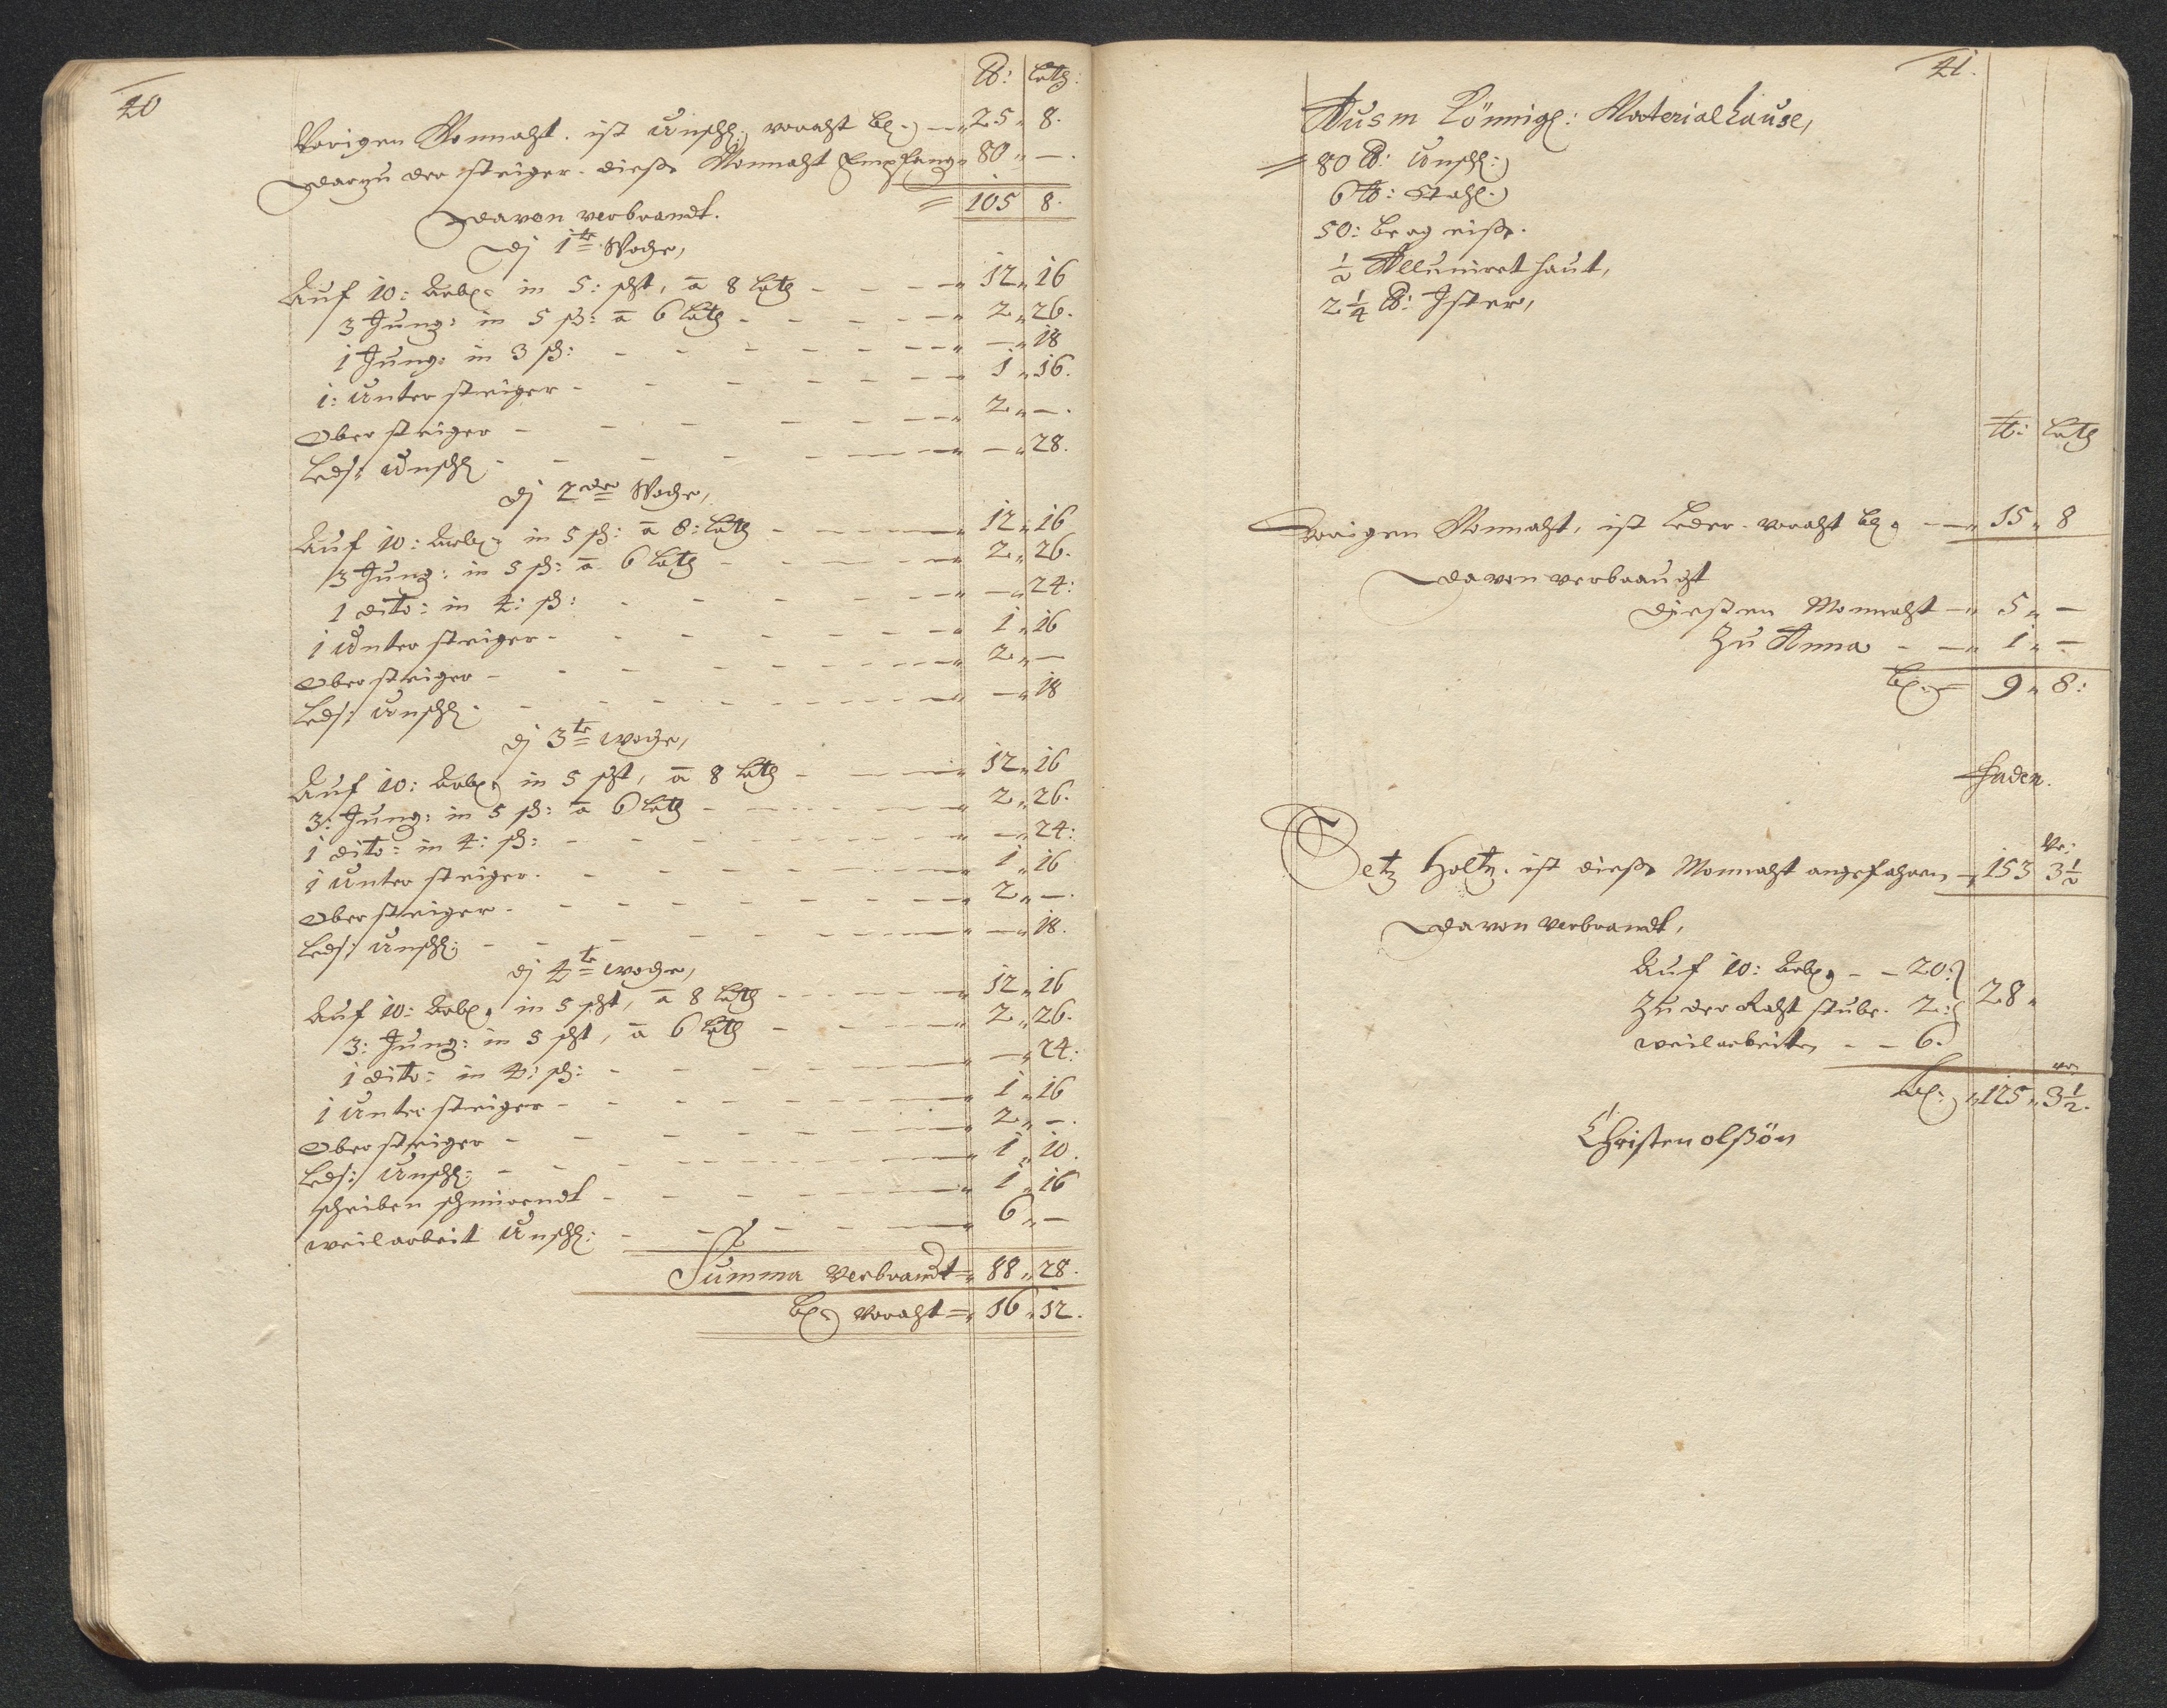 40
℔: Loth:
Vorigen Monnaht. ist Unschl: voraht bl: — 25 „ 8.
Darzu der steiger. dieße Monnaht Empfang „ 80 „ —.
= 105 8.
Davon verbrandt.
Dj 1te Woche,
Auf 10: Arb: in 5: scht, a 8 Loth — 12 „ 16
3 Jung: in 5 sch: a 6 Loth — 2 „ 26.
1 Jung: in 3 sch: — — „ 18
1: Unter steiger — 1 „ 16.
Ober steiger — 2 „ —.
Leds: Unschl — — „ 28.
Dj 2der Woche,
Auf 10: Arb: in 5 sch: a 8: Loth — 12 „ 16
3 Jung: in 5 sch: a 6 Loth — 2 „ 26.
1 dito: in 4: sch: — — „ 24:
1 Unter steiger — 1 „ 16
Ober steiger — 2 „ —
Leds: Unschl: — — „ 18
Dj 3te woche,
Auf 10: Arb: in 5 scht, a 8 Loth — 12 „ 16
3: Jung: in 5 sch: a 6 Loth — 2 „ 26.
1 dito: in 4: sch: — — „ 24:
1 Unter steiger. — 1 „ 16
Ober steiger. — 2 „ —.
Leds: Unschl: — — „ 18.
Dj 4te woche,
Auf 10: Arb: in 5 scht, a 8 Loth — 12 „ 16
3: Jung: in 5 scht, a 6 Loth — 2 „ 26.
1 dito: in 4: sch: — — „ 24:
1 Unter steiger — 1 „ 16
Ober steiger — 2 „ —.
Leds: Unschl: — 1 „ 10.
scheiben schmirendt — 1 „ 16
weilarbeit Unschl: — 6 „ —
Summa Verbrandt = 88 „ 28.
bl: Voraht = 16 „ 12.
41.
Ausm Könnigl: Materialhause,
= 80 ℔: Unschl:
6 ℔: Stahl:
50: Berg eiße.
1/2 Alluniret haut,
2 1/4 ℔: Ister,
℔: Loth
Vorigen Monnaht, ist Leder. voraht bl: — 15 „ 8
Davon verbraucht
Dießen Monnaht — 5 „ —
Zu Anna — 1 „ —
bl: = 9 „ 8:
Faden.
Setz Holtz. ist dieße Monnaht angefahren — 153 Vr: 3 1/2
Davon Verbrandt,
Auf 10: Arb: — 20:
Zu der Raht stube. 2: 28 „
weilarbeit — 6.
bl: „ 125 „ vr: 3 1/2.
Christen olßön